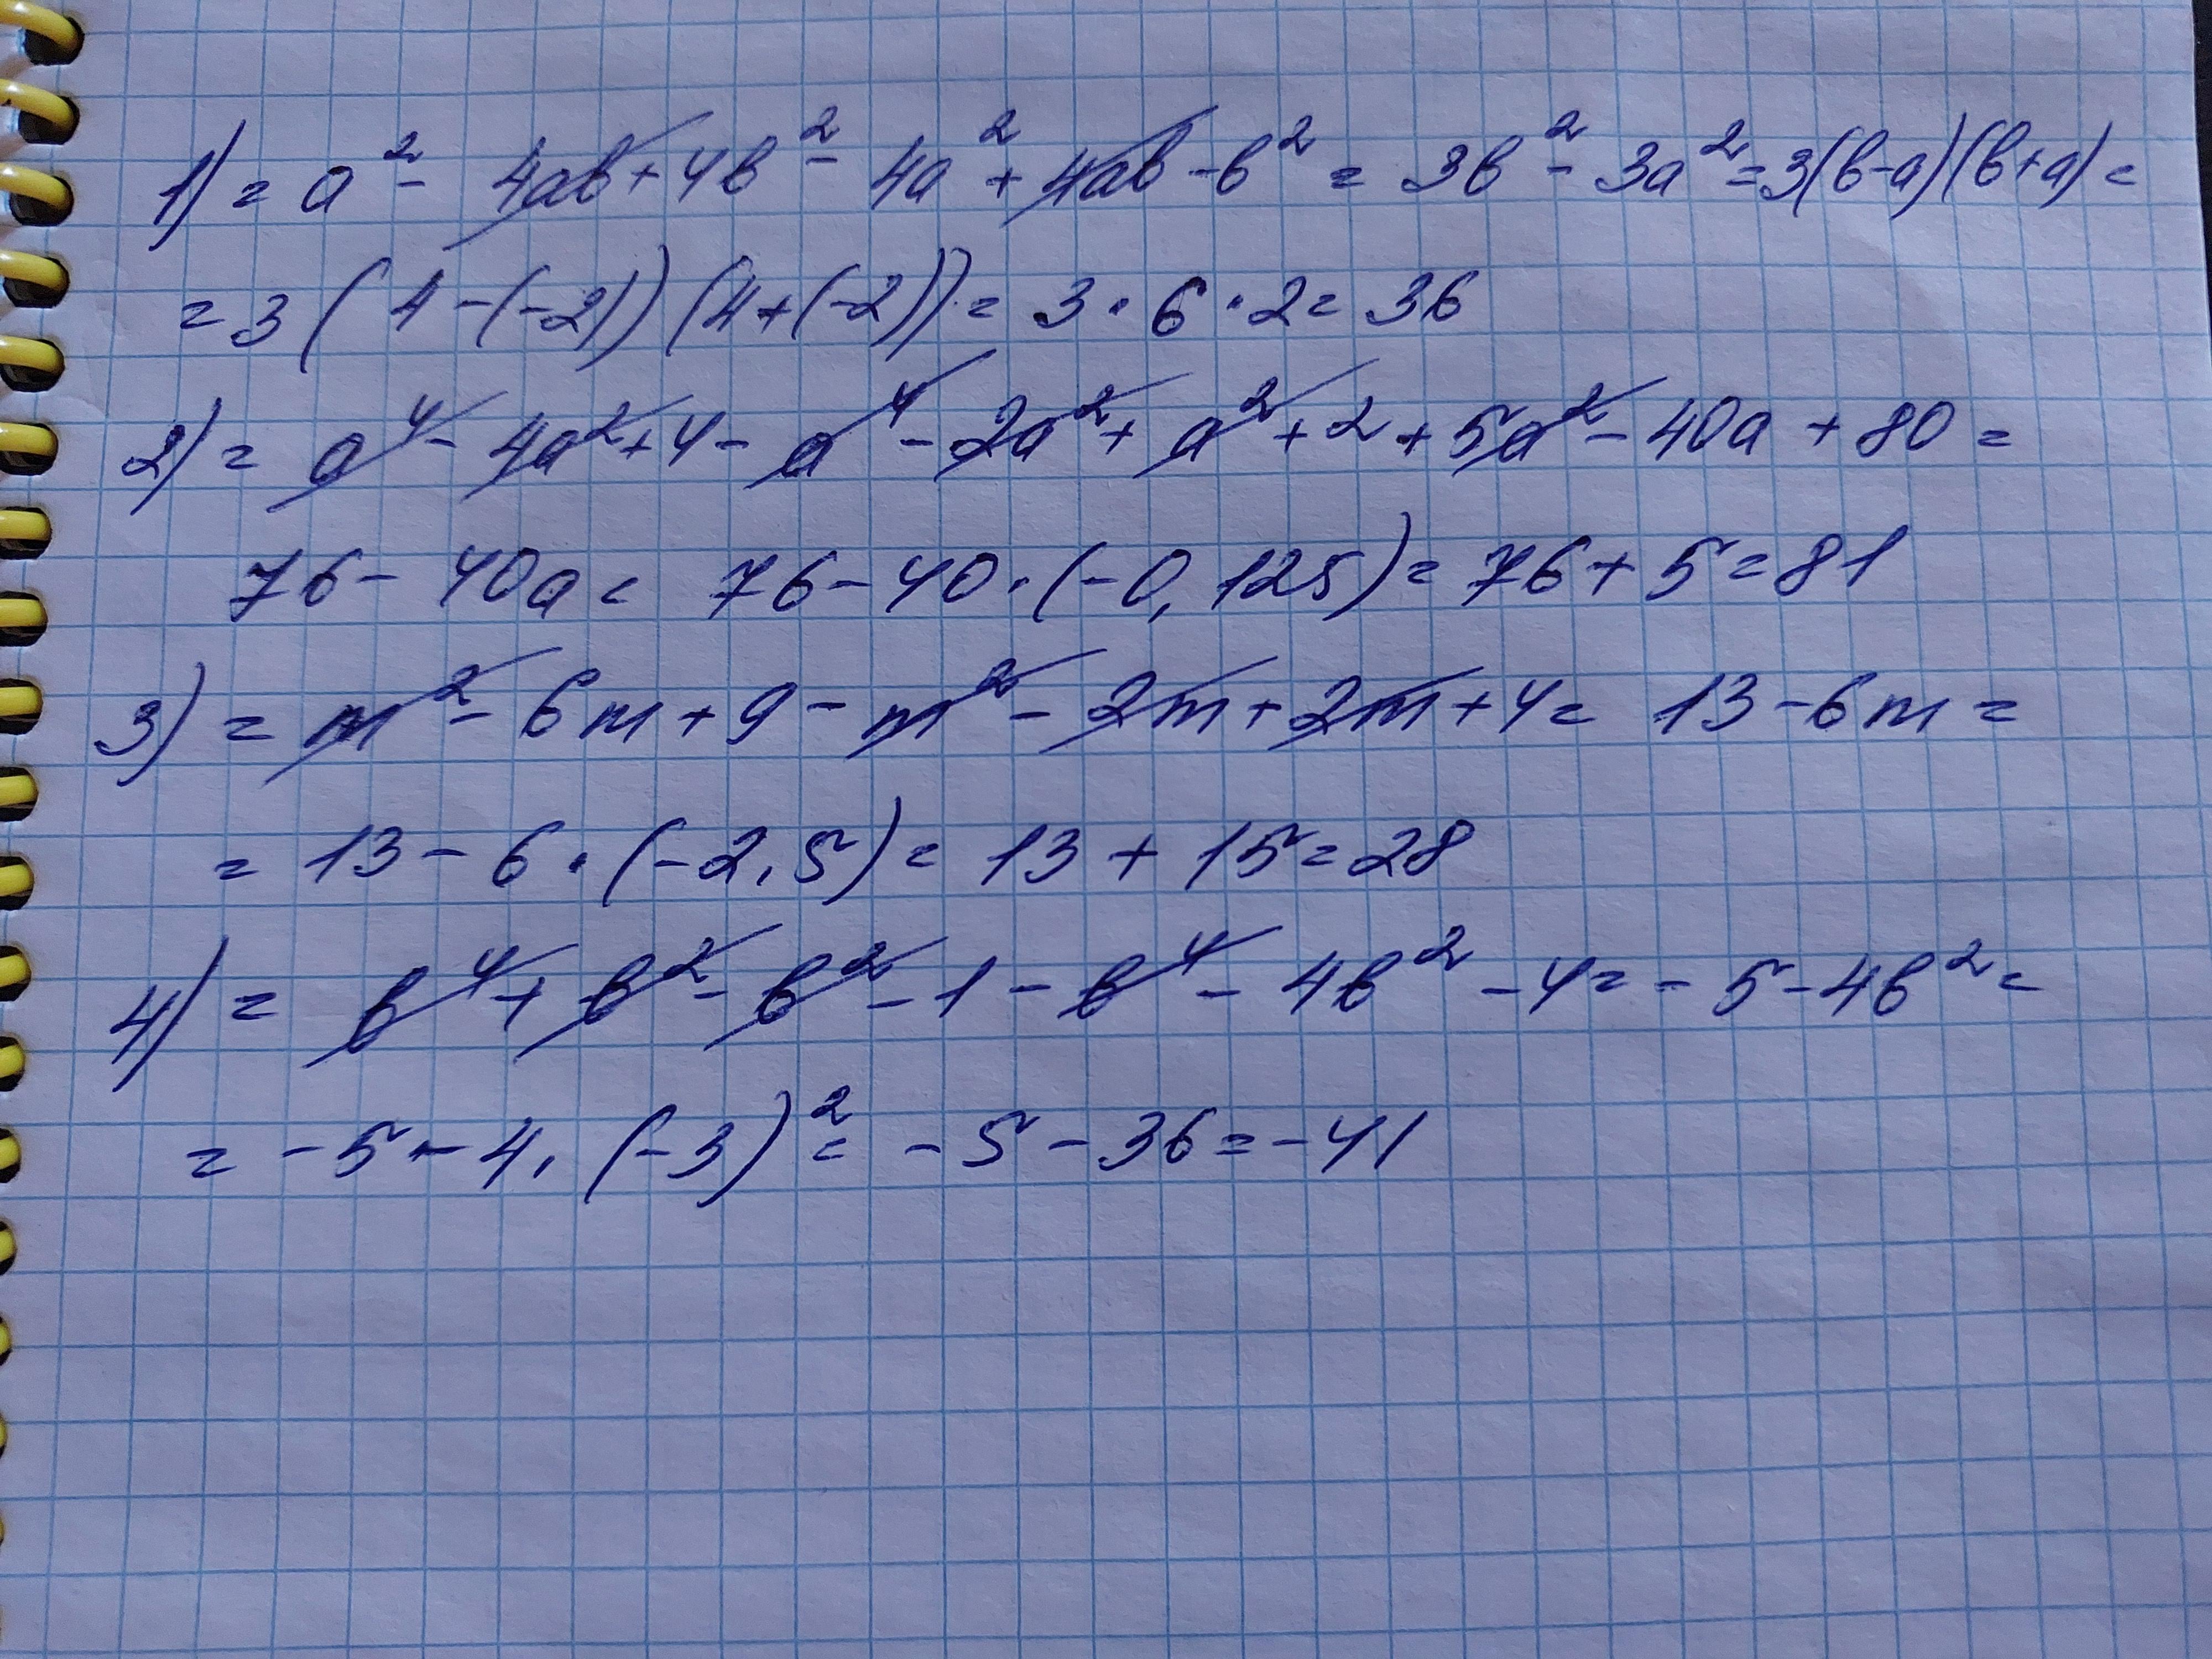 1) = a² - 4ab + 4b² - 4a² + 4ab - b² = 3b² - 3a² = 3(b-a)(b+a) =
= 3(4-(-2))(4+(-2)) = 3·6·2 = 36
2) = a⁴ - 4a² + 4 - a⁴ - 2a² + a² + 2 + 5a² - 40a + 80 =
76 - 40a = 76 - 40·(-0,125) = 76 + 5 = 81
3) = m² - 6m + 9 - m² - 2m + 2m + 4 = 13 - 6m =
= 13 - 6·(-2,5) = 13 + 15 = 28
4) = b⁴ + b² - b² - 1 - b⁴ - 4b² - 4 = -5 - 4b² =
= -5 - 4·(-3)² = -5 - 36 = -41